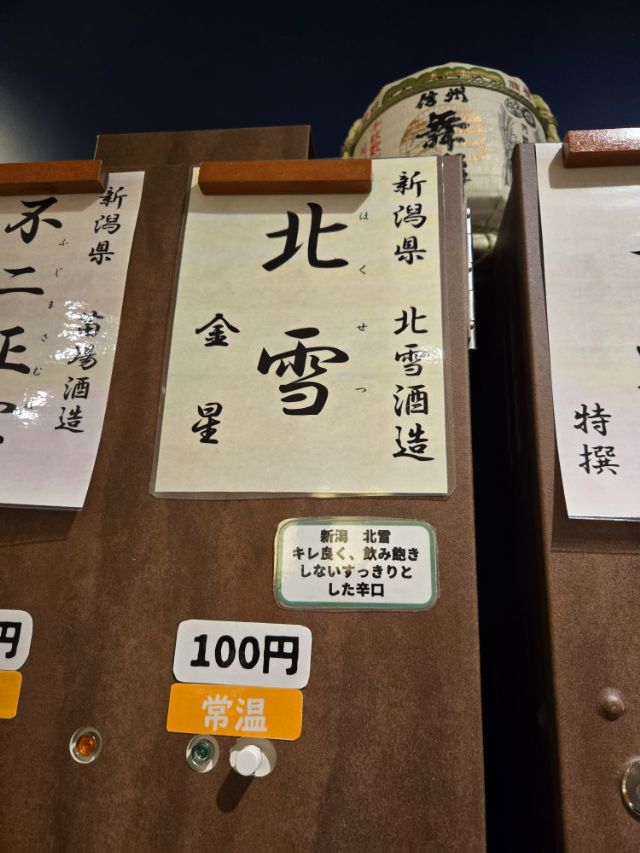 信州
舞
新潟県 北雪酒造
北雪
ほくせつ
金星
新潟 北雪
キレ良く、飲み飽き
しないすっきりと
した辛口
100円
常温
新潟県 苗場酒造
不二正
ふじまさむ
円
特撰